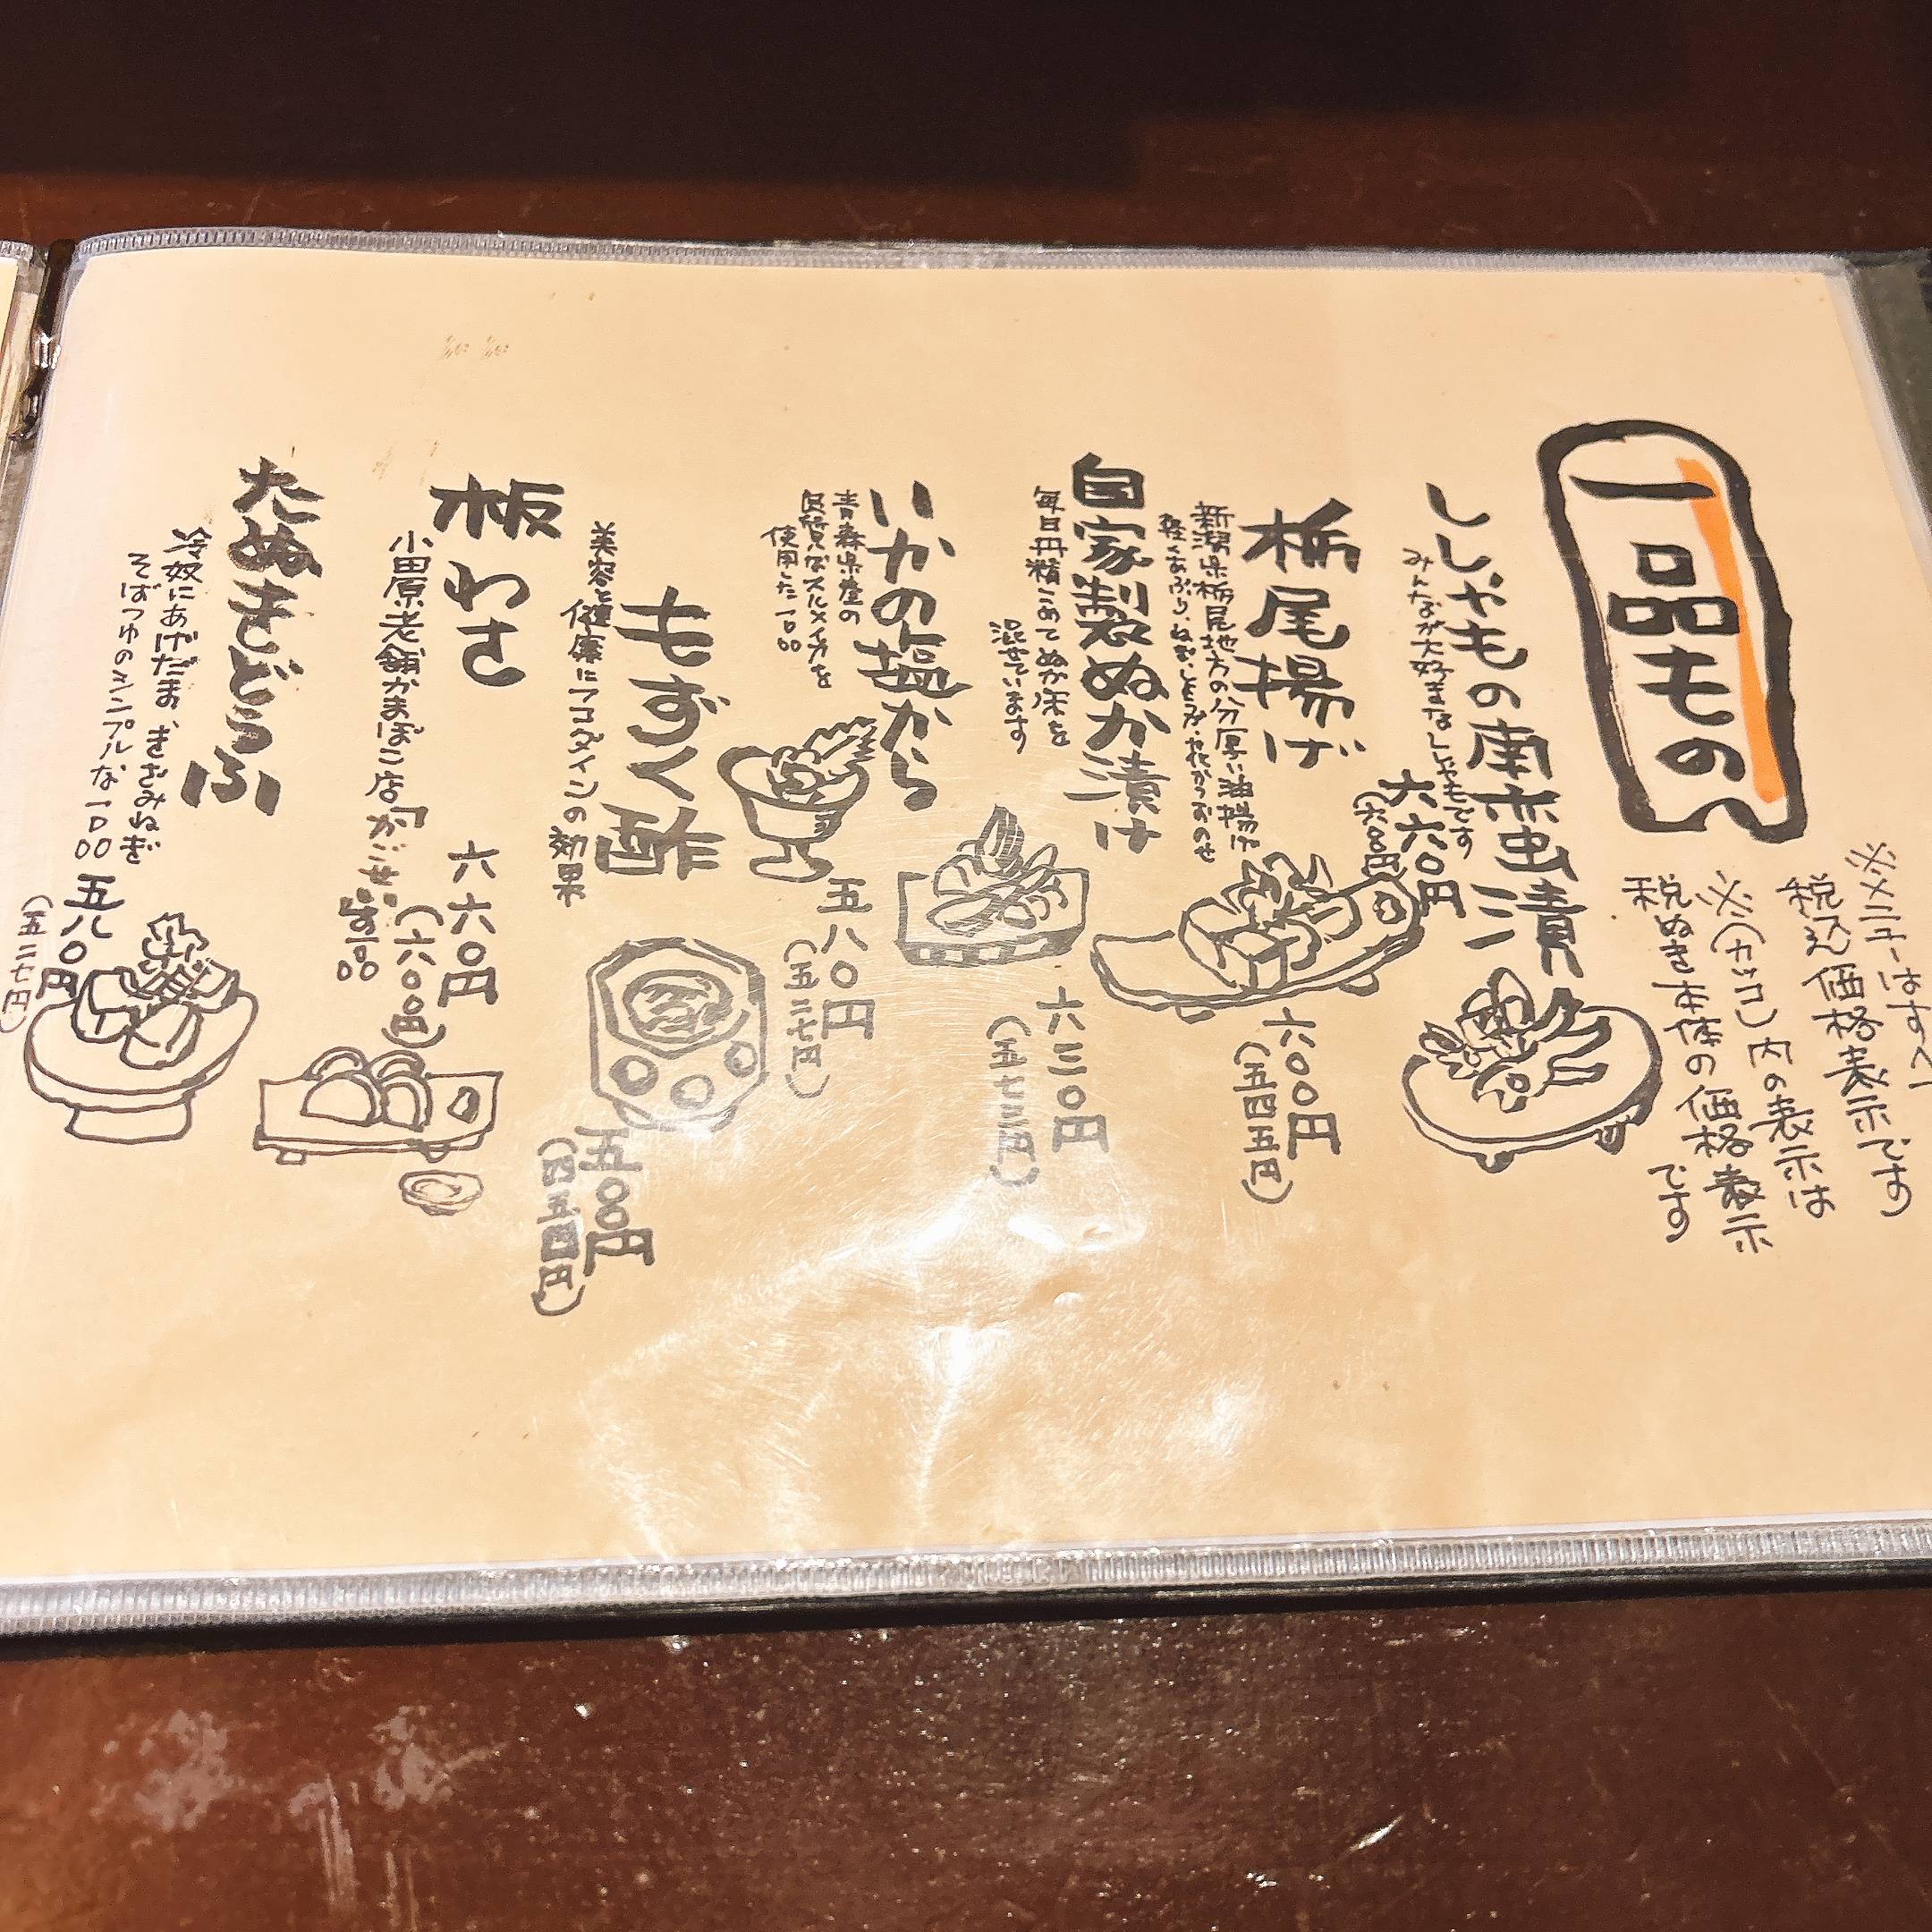 一品もの
※メニューはすべて
税込価格表示です
※(カッコ)内の表示は
税ぬき本体の価格表示
です
ししゃもの南蛮漬
みんなが大好きなししゃもです
六六〇円
(六〇〇円)
栃尾揚げ
新潟県栃尾地方の分厚い油揚げ
軽くあぶり、ねぎ、しょうが、花かつおのせ
六〇〇円
(五四五円)
自家製ぬか漬け
毎日丹精こめてぬか床を
混ぜています
六三〇円
(五七三円)
いかの塩から
青森県産の
良質なスルメイカを
使用した一品
五八〇円
(五二七円)
もずく酢
美容と
健康にフコダインの効果
五〇〇円
(四五四円)
板わさ
小田原老舗かまぼこ店「かごせい」
六六〇円
(六〇〇円)
たぬきどうふ
冷奴にあげだま きざみねぎ
そばつゆのシンプルな一品
五八〇円
(五二七円)